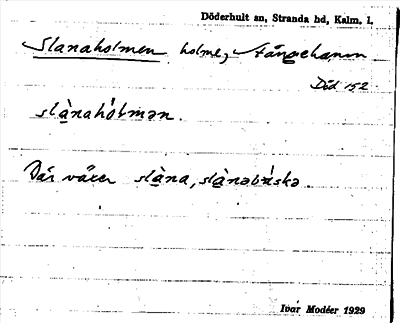 Döderhult sn, Stranda hd, Kalm. l.
Slanaholmen holme,
Död 152
slànahólmən.
Där växer slàna, slànəbúskə.
Ivar Modéer 1929